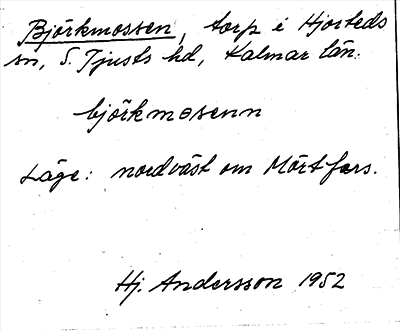 Björkmossen, torp i Hjorteds
sn, S. Tjusts hd, Kalmar län.
björkmosenn
Läge: nordväst om Mörtfors.
Hj. Andersson 1952